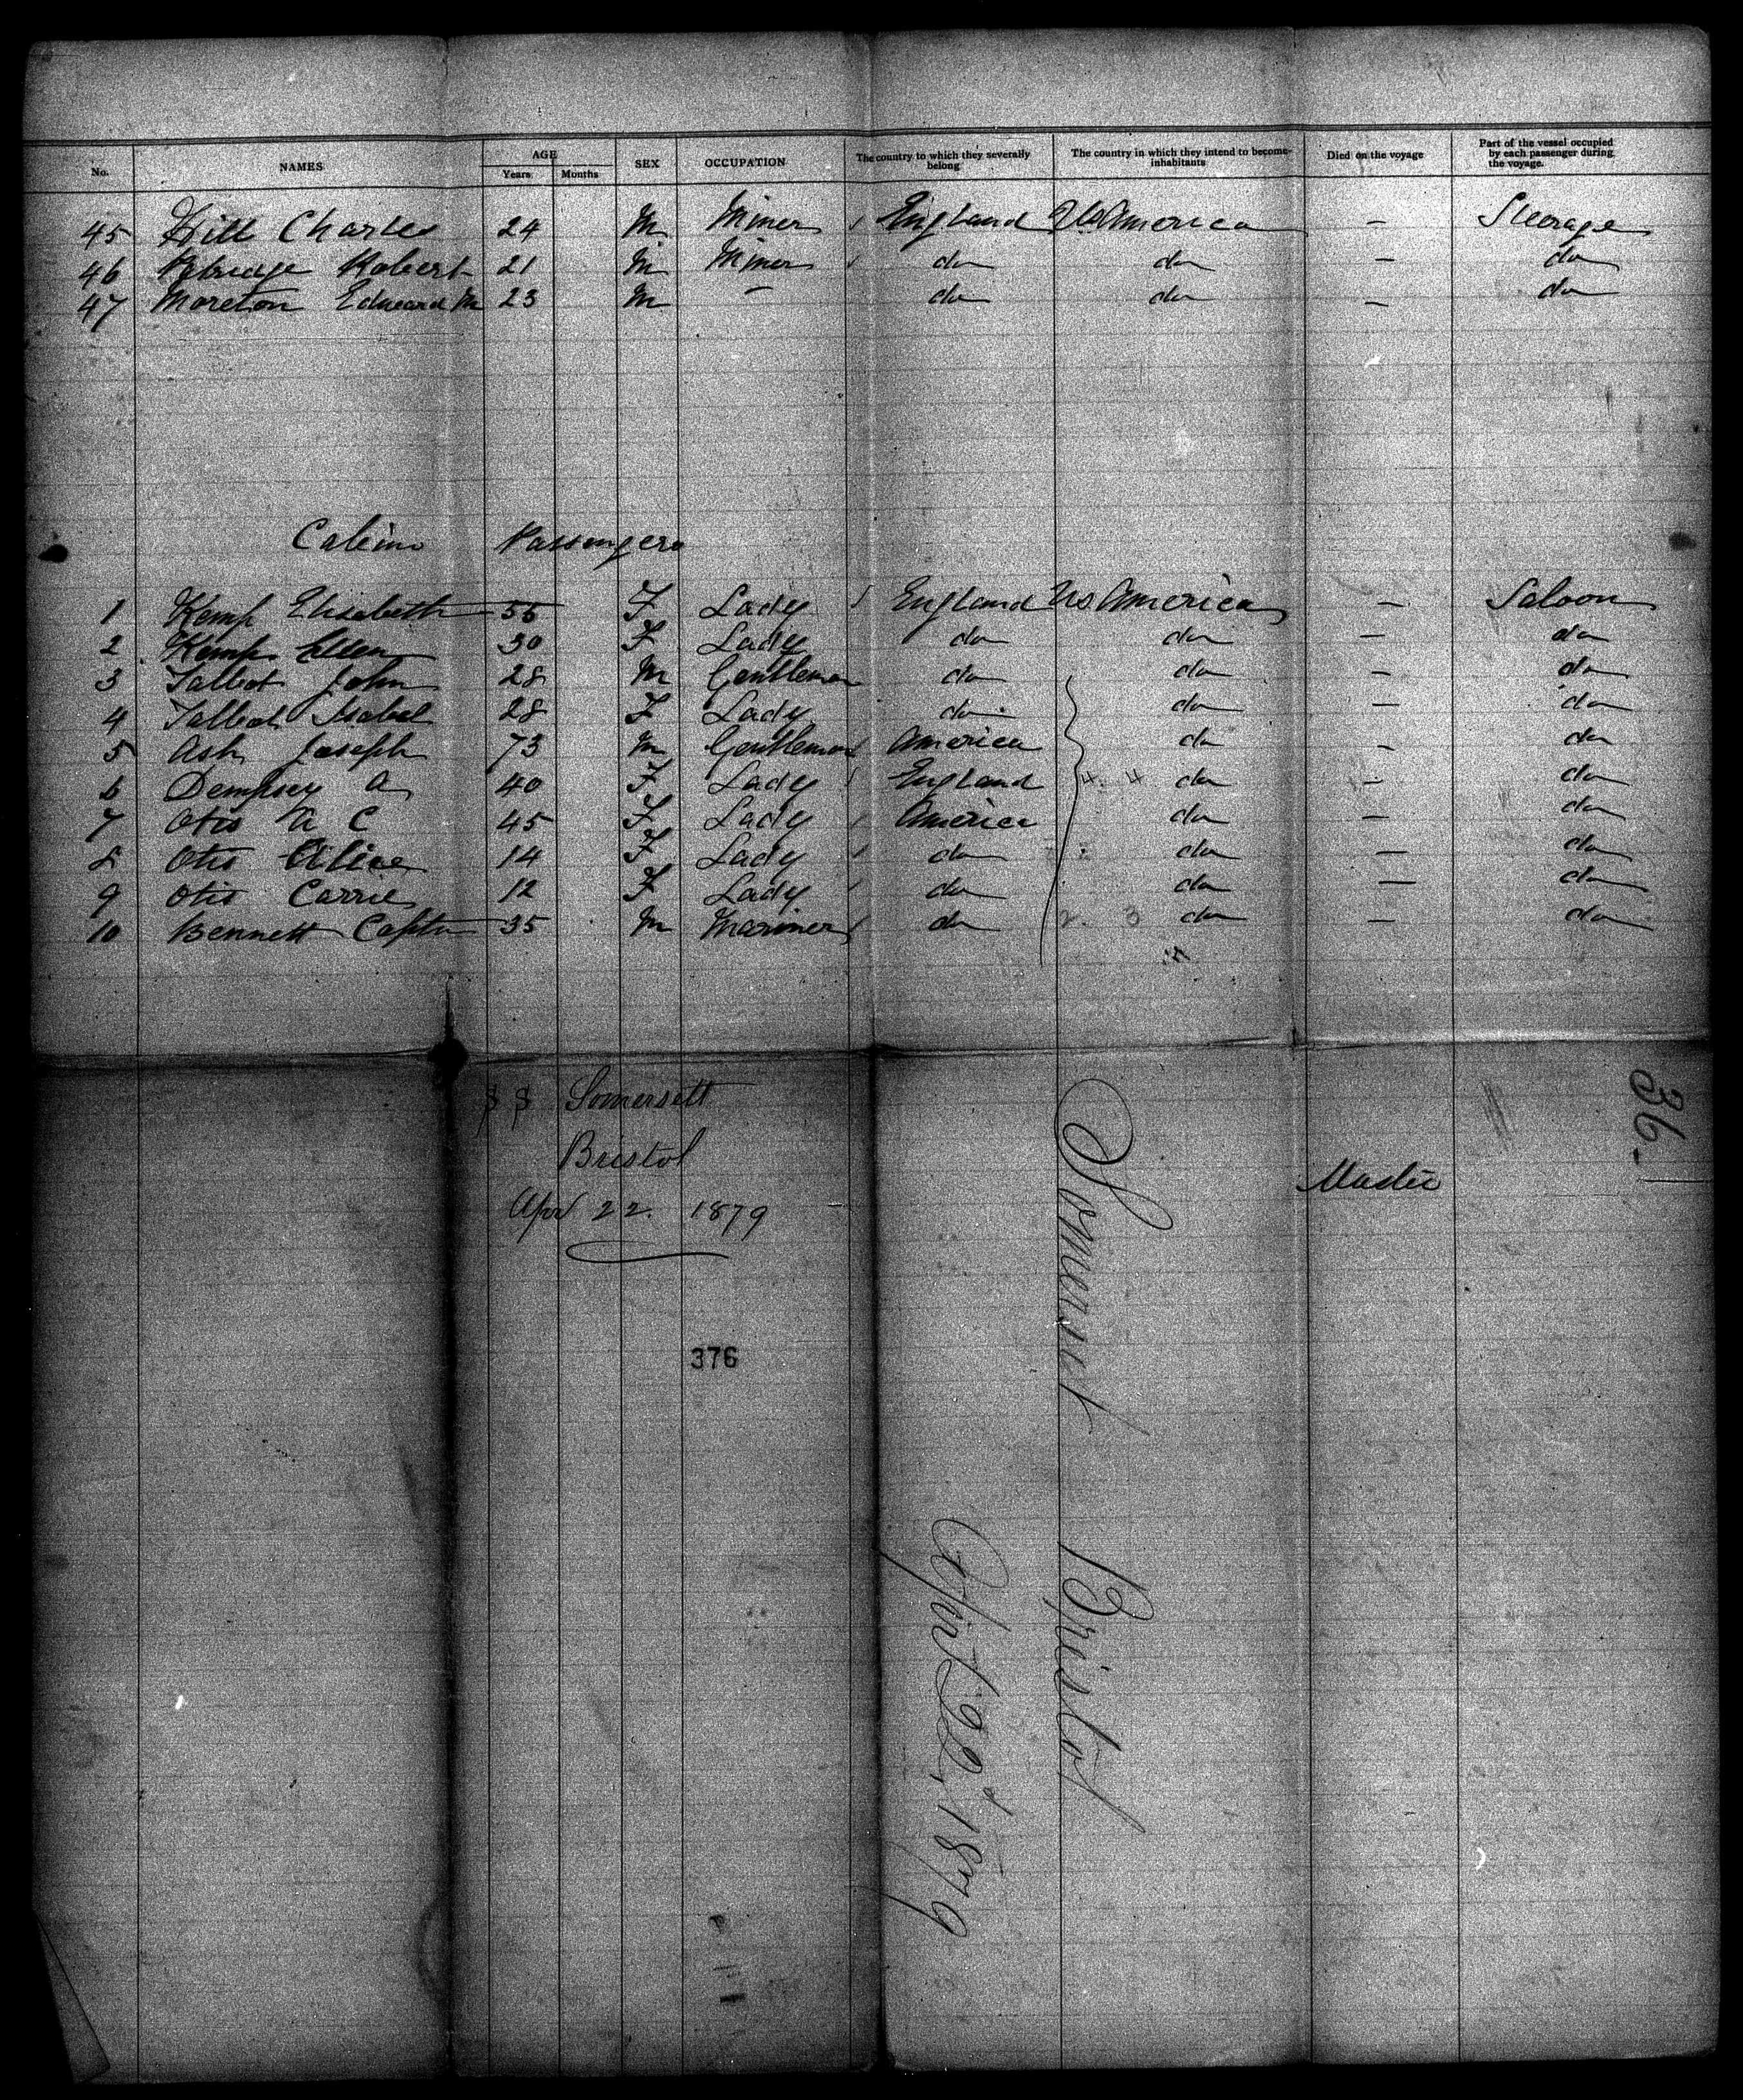 No. NAMES AGE Years Months SEX OCCUPATION The country to which they severally belong The country in which they intend to become inhabitants Died on the voyage Part of the vessel occupied by each passenger during the voyage.
45 Hill Charles 24 M Miner England U.S. America — Steerage
46 Robert 21 M Miner do do — do
47 Moreton Edward M 23 M — do do — do
Cabin Passengers
1 Kemp Elisabeth 55 F Lady England U.S. America — Saloon
2 Kemp Ellen 30 F Lady do do — do
3 Talbot John 28 M Gentleman do do — do
4 Talbot Isabel 28 F Lady do do — do
5 Ash Joseph 73 M Gentleman America do — do
6 Dempsey A 40 F Lady England 4. 4 do — do
7 Otis A C 45 F Lady America do — do
8 Otis Alice 14 F Lady do do — do
9 Otis Carrie 12 F Lady do do — do
10 Bennett Captn 35 M Mariner do 2. 3 do — do
36
SS Somersett
Bristol
Apr 22. 1879
Master
376
Somerset Bristol
April 22d 1879